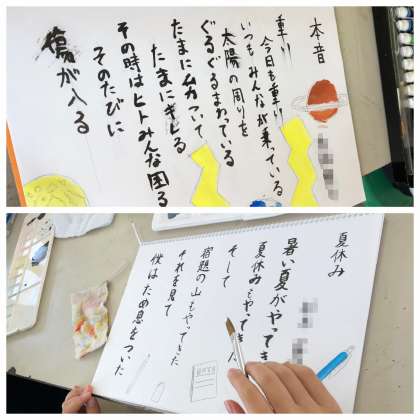 本音
重い
今日も重い
いつもみんなが乗っている
太陽の周りを
ぐるぐるまわっている
たまにムカついて
たまにキレる
その時はヒトみんな困る
そのたびに
傷が入る
夏休み
暑い夏がやってき
夏休みもやってき
そして
宿題の山もやってきた
それを見て
僕はため息をついた